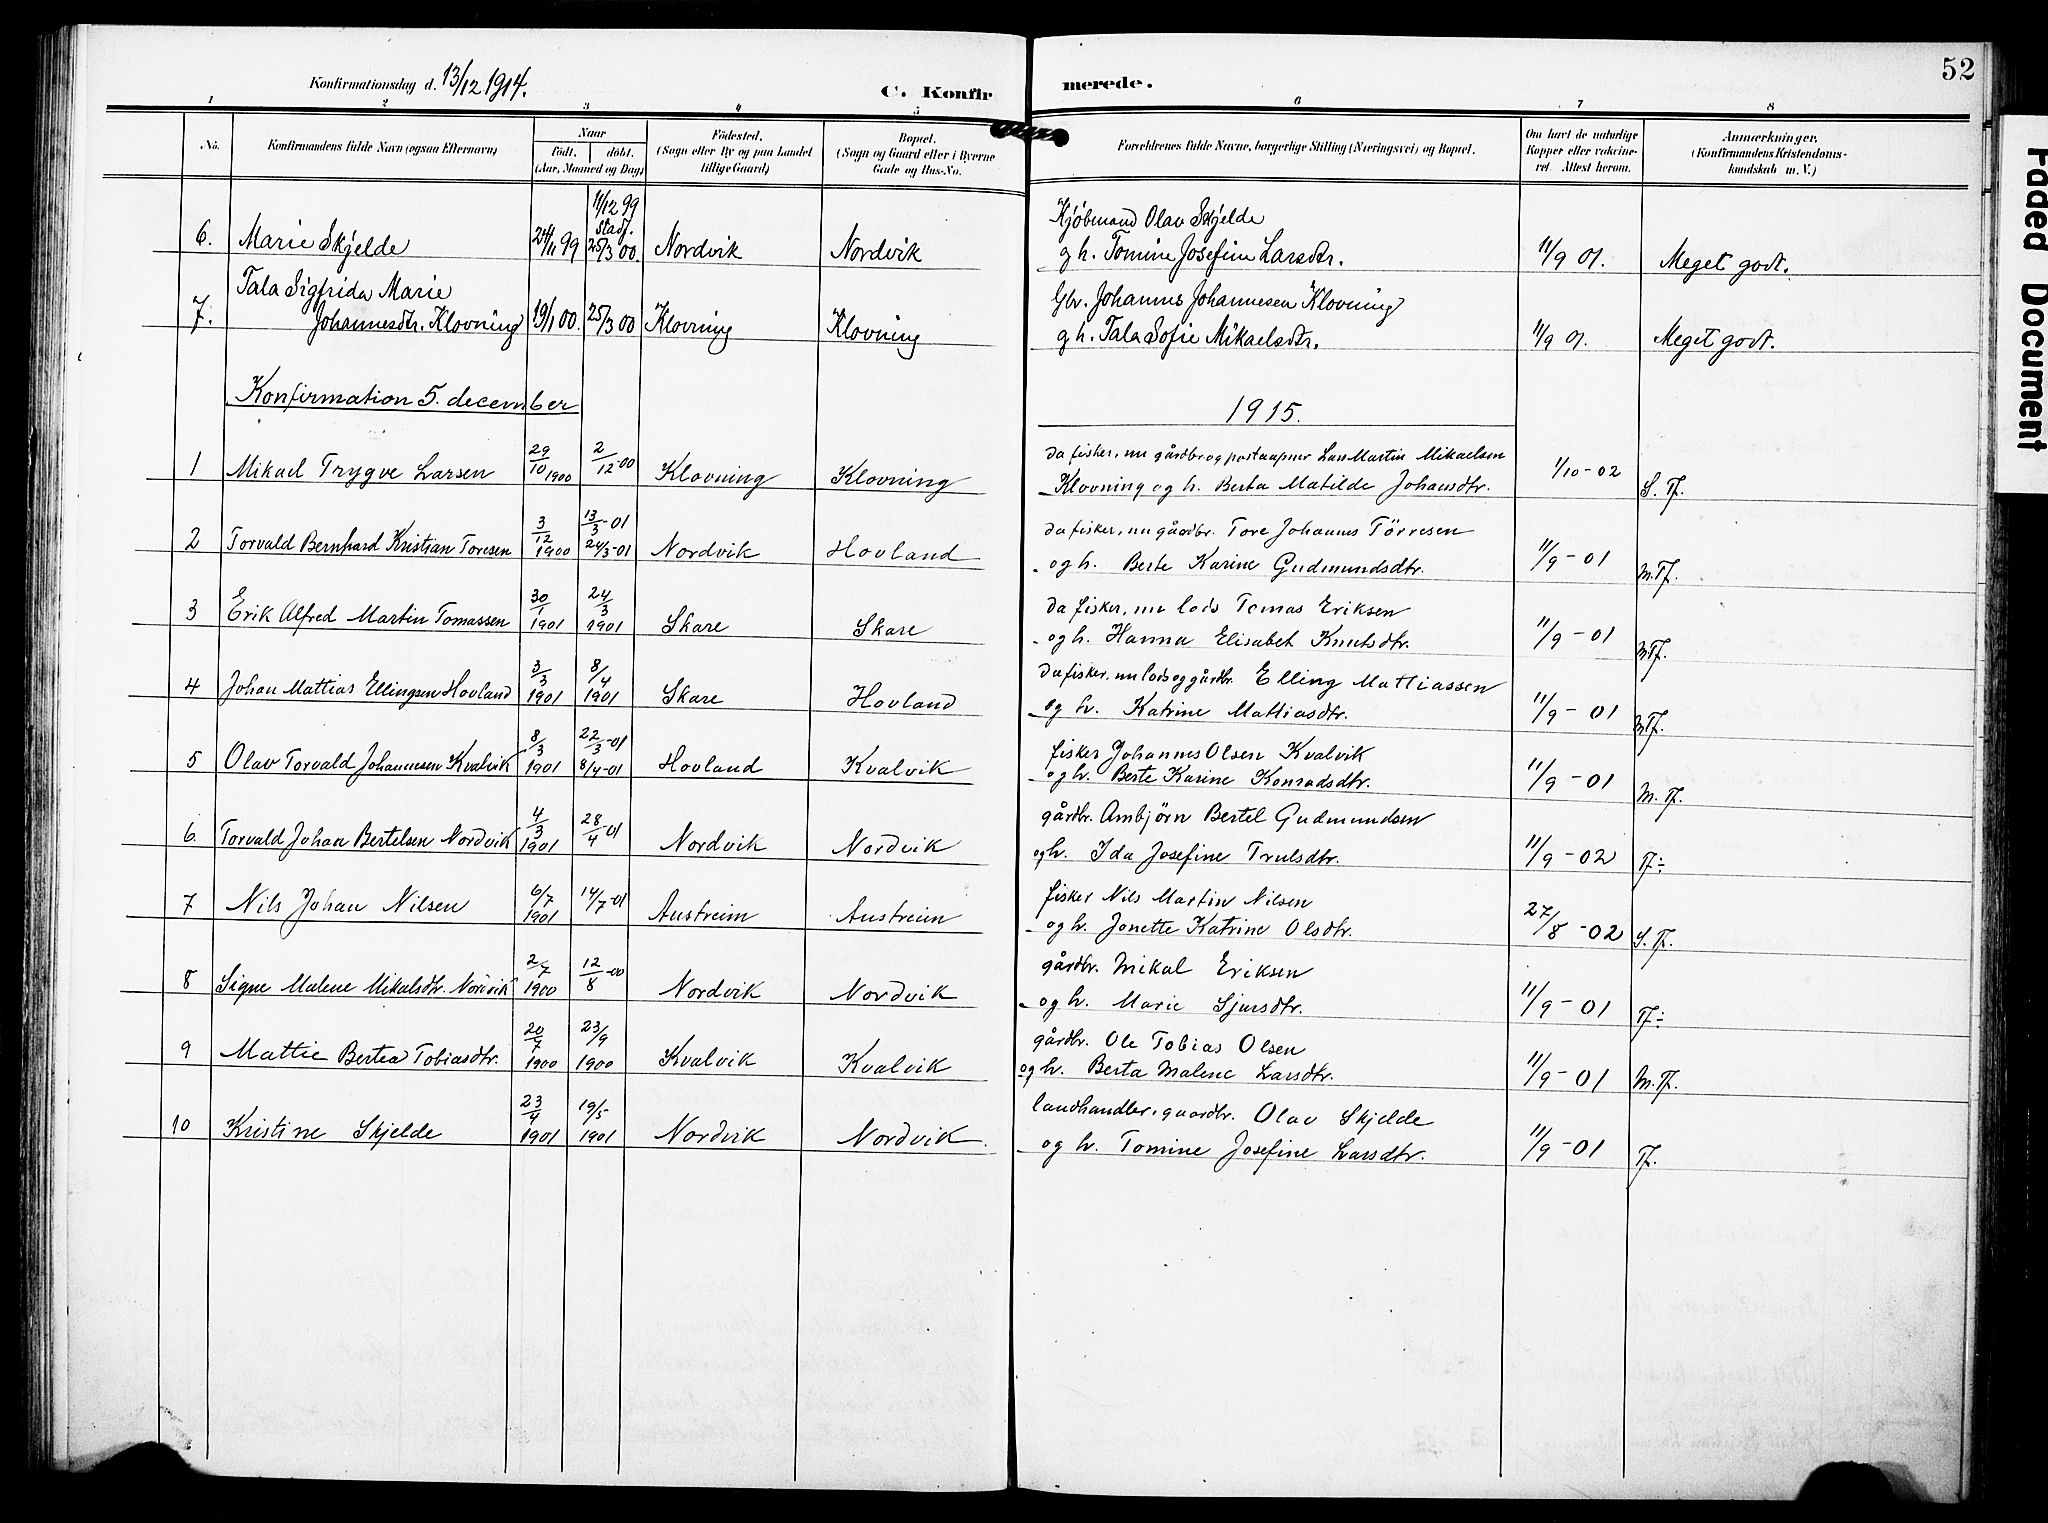 52
Konfirmationsdag d. 13/12 1914.
C. Konfirmerede.
1 2 3 4 5 6 7 8
No. Konfirmandens fulde Navn (ogsaa Efternavn) Naar født. døbt. (Aar, Maaned og Dag) Fødested. (Sogn eller By og paa Landet tillige Gaard) Bopæl. (Sogn og Gaard eller i Byerne Gade og Hus-No. Forældrenes fulde Navne, borgerlige Stilling (Næringsvei) og Bopæl. Om havt de naturlige Kopper eller vaksineret. Attest herom. Anmærkninger. (Konfirmandens Kristendomskundskab m. V.)
11/12 99 Stadf. Kjøbmand Olav Skjelde
6. Marie Skjelde 24/11 99 25/3 00 Nordvik Nordvik og h. Tomine Josefine Larsdtr. 11/9 01. Meget godt.
Tala Sigfrida Marie Gbr. Johannes Johannesen Klovning
7. Johannesdtr. Klovning 19/1 00. 25/3 00 Klovning Klovning og h. Tala Sofie Mikaelsdtr. 11/9 01. Meget godt.
Konfirmation 5. december 1915.
da fisker, nu gårdbr og postaapner Lars Martin Mikaelsen
1 Mikael Trygve Larsen 29/10 1900 2/12-00 Klovning Klovning Klovning og h. Berta Matilde Johansdtr. 1/10-02 S. Tf.
13/3-01 da fisker, nu gårdbr. Tore Johannes Törresen
2 Torvald Bernhard Kristian Toresen 3/12 1900 24/3-01 Nordvik Hovland og h. Berte Karine Gudmundsdtr. 11/9-01 M.Tf.
da fisker, nu lods Tomas Eriksen
3 Erik Alfred Martin Tomassen 30/1 1901 24/3 1901 Skare Skare og h. Hanna Elisabet Knutsdtr. 11/9-01 M.Tf.
da fisker, nu lods og gårdbr. Elling Mattiassen
4 Johan Mattias Ellingsen Hovland 3/3 1901 8/4 1901 Skare Hovland og h. Katrine Mattiasdtr. 11/9-01 M.Tf.
22/3-01 fisker Johannes Olsen Kvalvik
5 Olav Torvald Johannesen Kvalvik 8/3 1901 8/4-01 Hovland Kvalvik og h. Berte Karine Konradsdtr. 11/9-01 M. Tf.
gårdbr. Ambjörn Bertel Gudmundsen
6. Torvald Johan Bertelsen Nordvik 4/3 1901 28/4-01 Nordvik Nordvik og h. Ida Josefine Trulsdtr. 11/9-02 Tf÷
fisker Nils Martin Nilsen
7 Nils Johan Nilsen 6/7 1901 14/7-01 Austreim Austreim og h. Jonette Katrine Olsdtr. 27/8-02 S. Tf.
gårdbr. Mikal Eriksen
8 Signe Malene Mikalsdtr. Nordvik 2/7 1900 12/8-00 Nordvik Nordvik og h. Marie Sjursdtr. 11/9-01 Tf÷
gårdbr. Ole Tobias Olsen
9 Mattie Bertea Tobiasdtr. 20/7 1900 23/9 1900 Kvalvik Kvalvik og h. Berta Malene Larsdtr. 11/9-01 M. Tf.
landhandler, gaardbr. Olav Skjelde
10 Kristine Skjelde 23/4 1901 19/5- 1901 Nordvik Nordvik. og h. Tomine Josefine Larsdtr. 11/9-01 Tf.
Faded Document